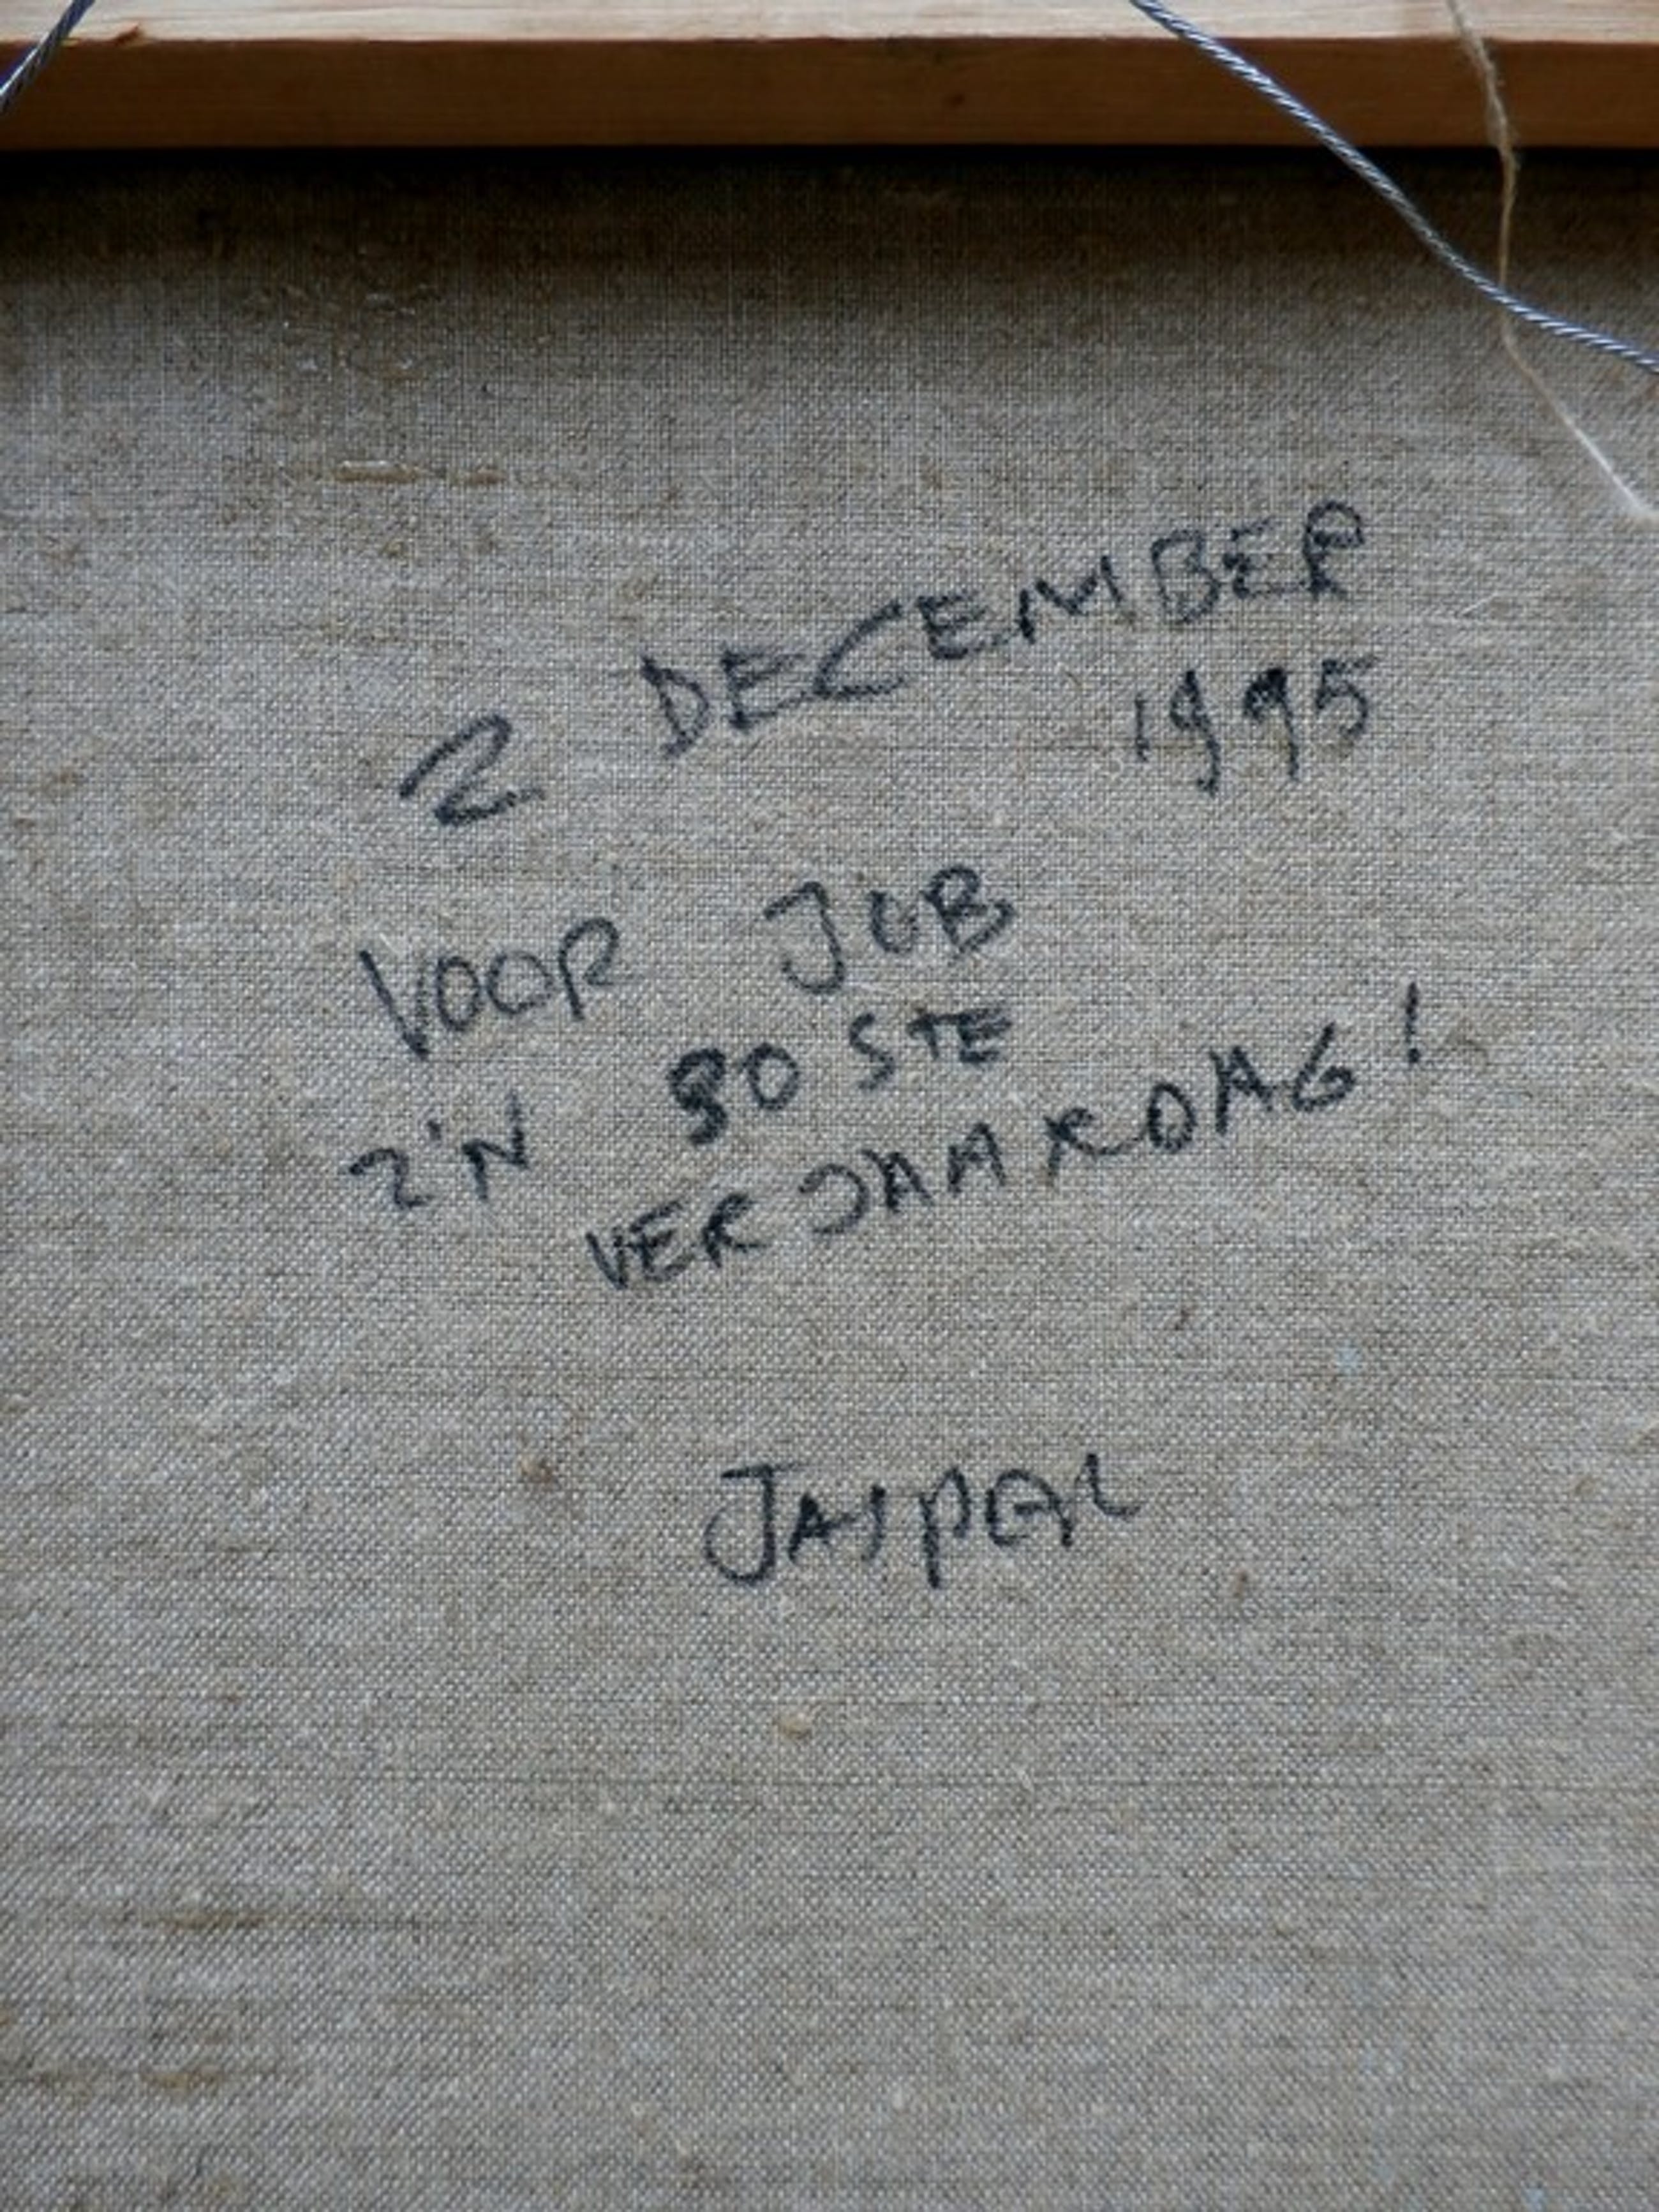 2 DECEMBER
1995
VOOR JOB
Z'N 80STE
VERJAARDAG!